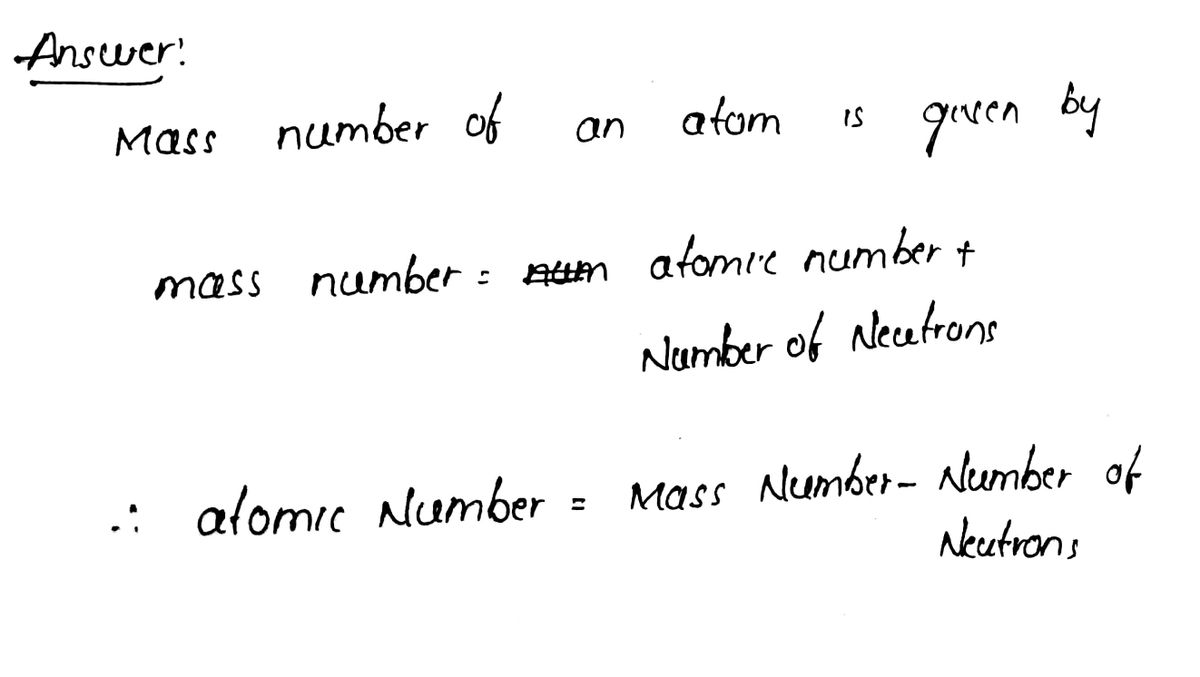 Answer:
Mass number of an atom is given by
mass number = num atomic number +
Number of Neutrons
∴ atomic Number = Mass Number - Number of
Neutrons